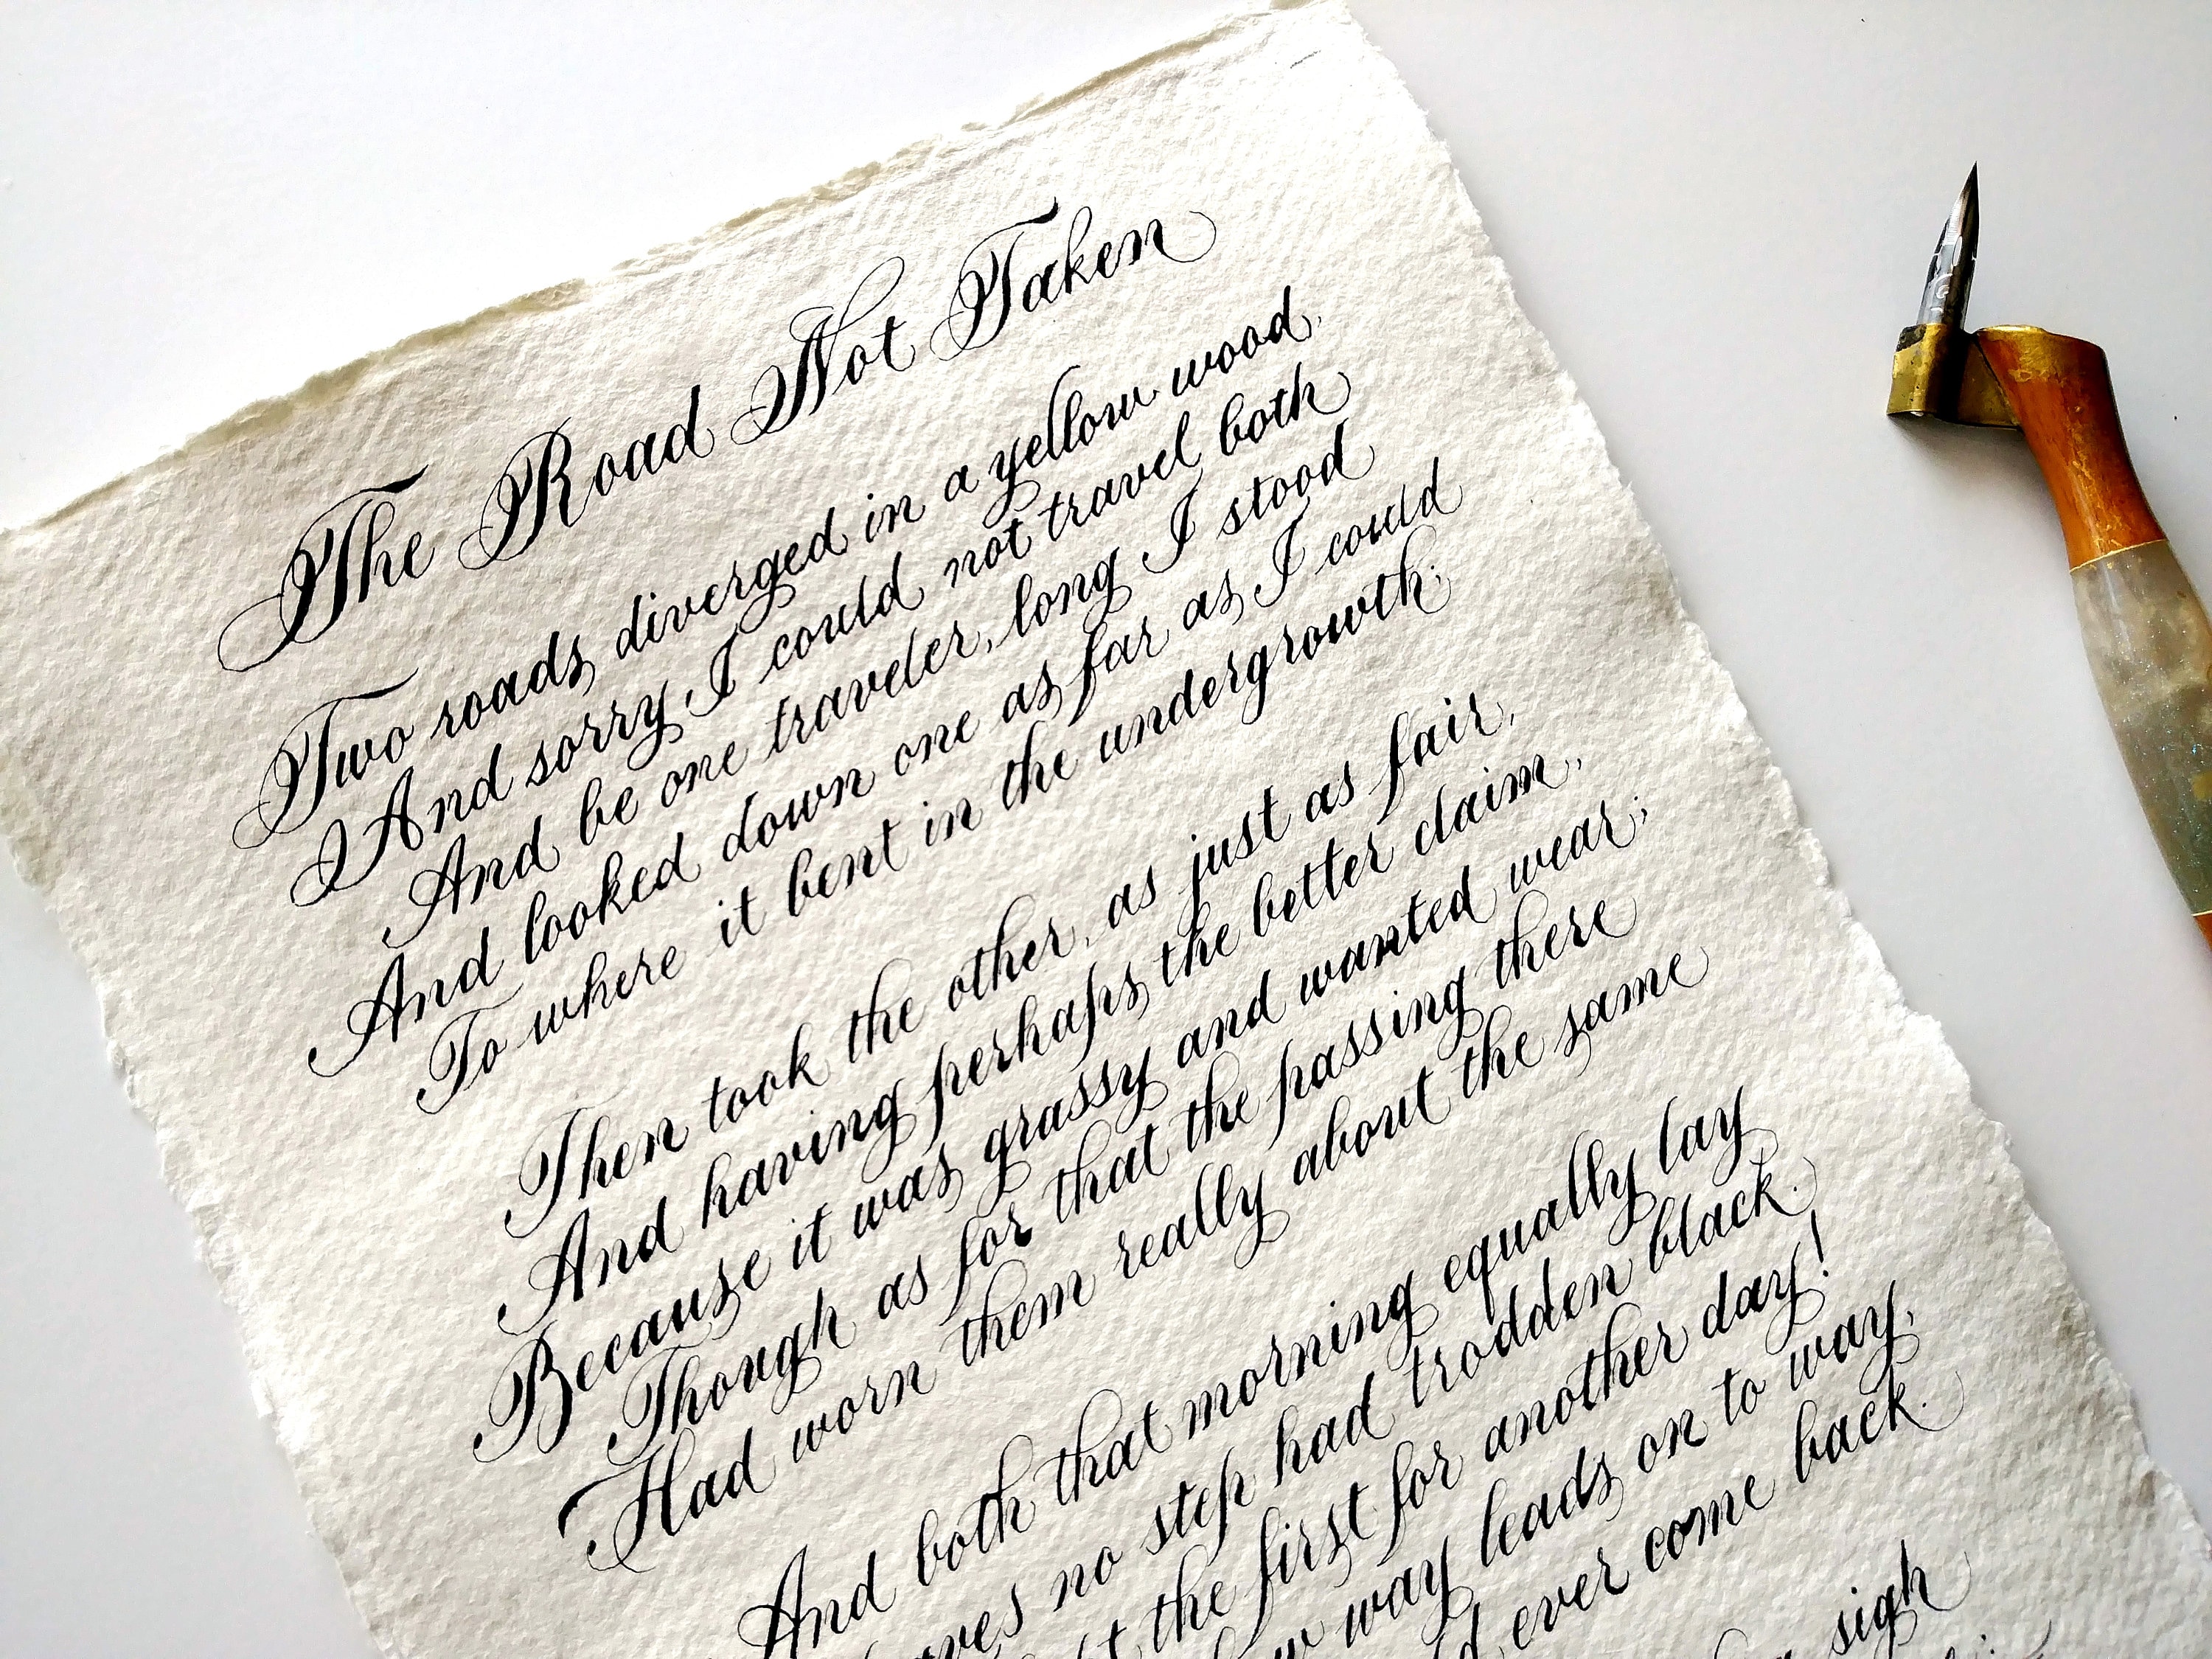 The Road Not Taken
Two roads diverged in a yellow wood,
And sorry I could not travel both
And be one traveler, long I stood
And looked down one as far as I could
To where it bent in the undergrowth;
Then took the other, as just as fair,
And having perhaps the better claim,
Because it was grassy and wanted wear;
Though as for that the passing there
Had worn them really about the same
And both that morning equally lay
no step had trodden black.
the first for another day!
way leads on to way,
ever come back.
sigh